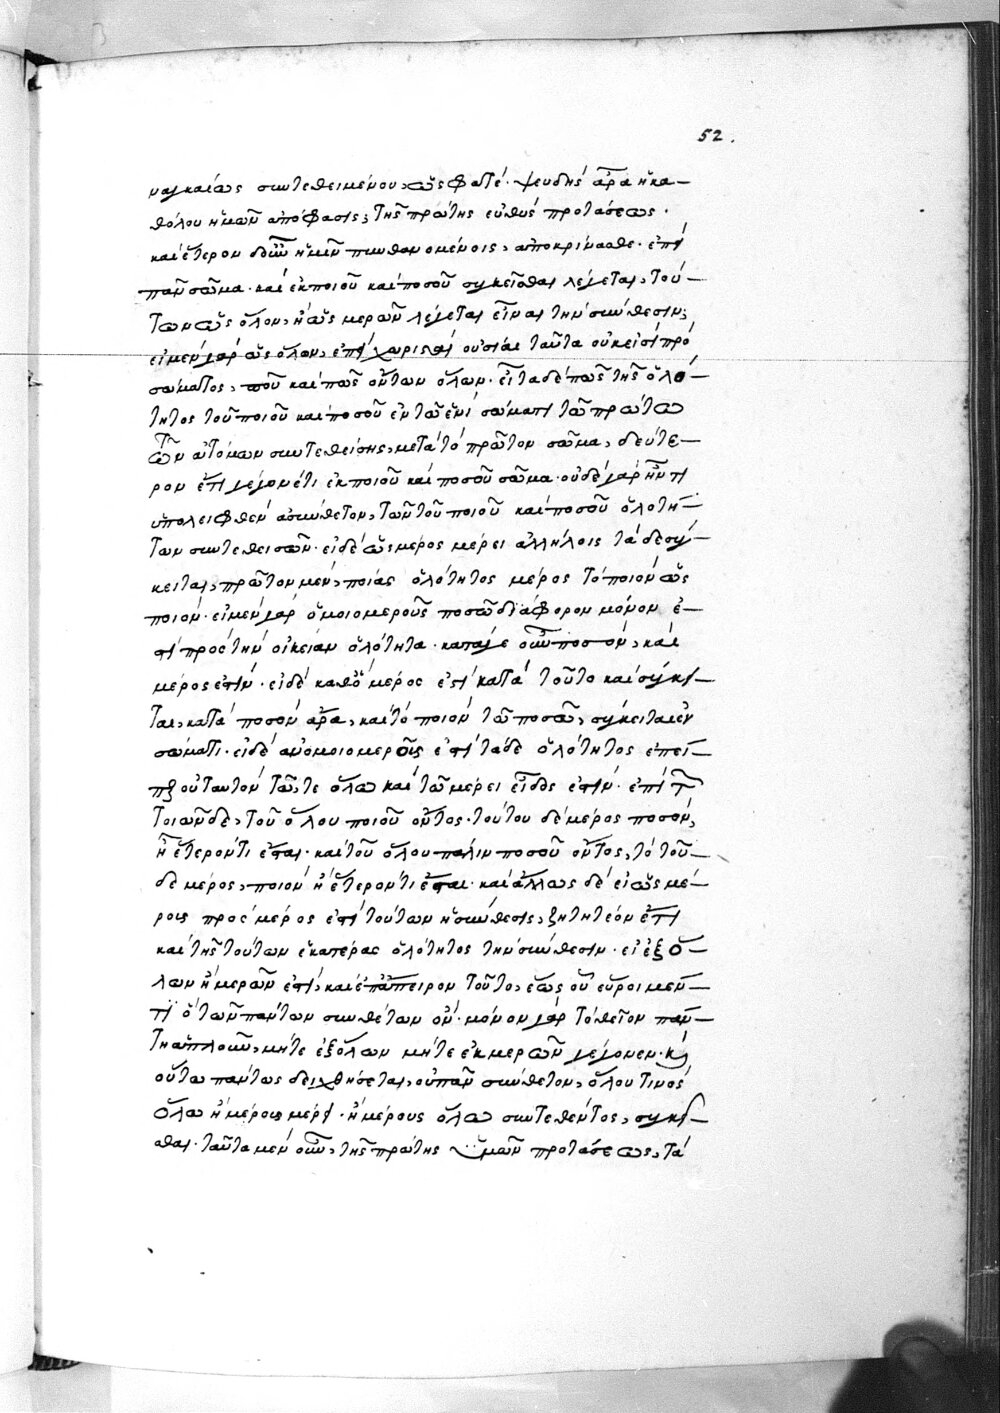 52.
ναγκαίως συντεθειμένου, ὥς φατέ· ψευδής ἄρα ἡ κα-
θόλου ἡμῶν ἀπόφασις, τῆς πρώτης εὐθύς προτάσεως·
καί ἕτερον δ' οὖν ἡμῖν πυνθανομένοις, ἀποκρίνασθε· ἐπεί
πᾶν σῶμα· καί ἐκ ποιοῦ καί ποσοῦ συγκεῖσθαι λέγεται, τού-
των ὡς ὅλον, ἤ ὡς μερῶν λέγεται εἶναι τήν σύνθεσιν;
εἰ μέν γάρ ὡς ὅλων, ἐπεί χωρισταί οὐσίαι ταῦτα οὐκ εἰσί πρό
σώματος, ποῦ καί πῶς ὄντων ὅλων· εἶτα δέ πῶς τῆς ὁλό-
τητος τοῦ ποιοῦ καί ποσοῦ ἐν τῶ ἑνί σώματι τῶ πρώτω
τῶν ἀτόμων συντεθείσης, μετά τό πρῶτον σῶμα, δεύτε-
ρον ἔτι γέγονέ τι ἐκ ποιοῦ καί ποσοῦ σῶμα· οὐδέ γάρ ἦν τι
ὑπολειφθέν ἀσύνθετον, τῶν τοῦ ποιοῦ καί ποσοῦ ὁλοτή-
των συντεθεισῶν· εἰ δέ ὡς μέρος μέρει ἀλλήλοις τάδε σύγ-
κειται, πρῶτον μέν, ποίας ὁλότητος μέρος τό ποιόν ὡς
ποιόν· εἰ μέν γάρ ὁμοιομεροῦς ποσῶ διάφορον μόνον ἐ-
στί πρός τήν οἰκείαν ὁλότητα· κατά γε οὖν ποσόν, καί
μέρος ἐστίν· εἰ δέ καθό μέρος ἐστί κατά τοῦτο καί σύγκει-
ται, κατά ποσόν ἄρα, καί τό ποιόν τῶ ποσῶ, σύγκειται ἐν
σώματι· εἰ δέ ἀνομοιομεροῦς ἐστί τάδε ὁλότητος ἐπεί-
περ οὐ ταυτόν τῶ τε ὅλω καί τῶ μέρει εἶδός ἐστιν· ἐπί τῶν
τοιῶνδε, τοῦ ὅλου ποιοῦ ὄντος· τούτου δέ μέρος ποσόν,
ἤ ἕτερόν τι ἔσται· καί τοῦ ὅλου πάλιν ποσοῦ ὄντος, τό τοῦ-
δε μέρος, ποιόν ἤ ἕτερόν τι ἔσται· καί ἄλλως δέ εἰ ὡς μέ-
ρους πρός μέρος ἐστί τούτων ἡ σύνθεσις, ζητητέον ἔτι
καί τῆς τούτων ἑκατέρας ὁλότητος τήν σύνθεσιν· εἰ ἐξ ὅ-
λων ἤ μερῶν ἐστί, καί ἐπ' ἄπειρον τοῦτο, ἕως οὗ εὕροιμεν-
τι ὅ τῶν πάντων συνθέτων ὄν· μόνον γάρ τό θεῖον πάν-
τη ἁπλοῦν, μήτε ἐξ ὅλων μήτε ἐκ μερῶν γέγονεν· καί
οὕτω πάντως δειχθήσεται, οὐ πᾶν σύνθετον, ὅλου τινός
ὅλω ἤ μέρους μέρει· ἤ μέρους ὅλω συντεθέντος, συγκεῖ-
σθαι· ταῦτα μέν οὖν, τῆς πρώτης ὑμῶν προτάσεως, τά